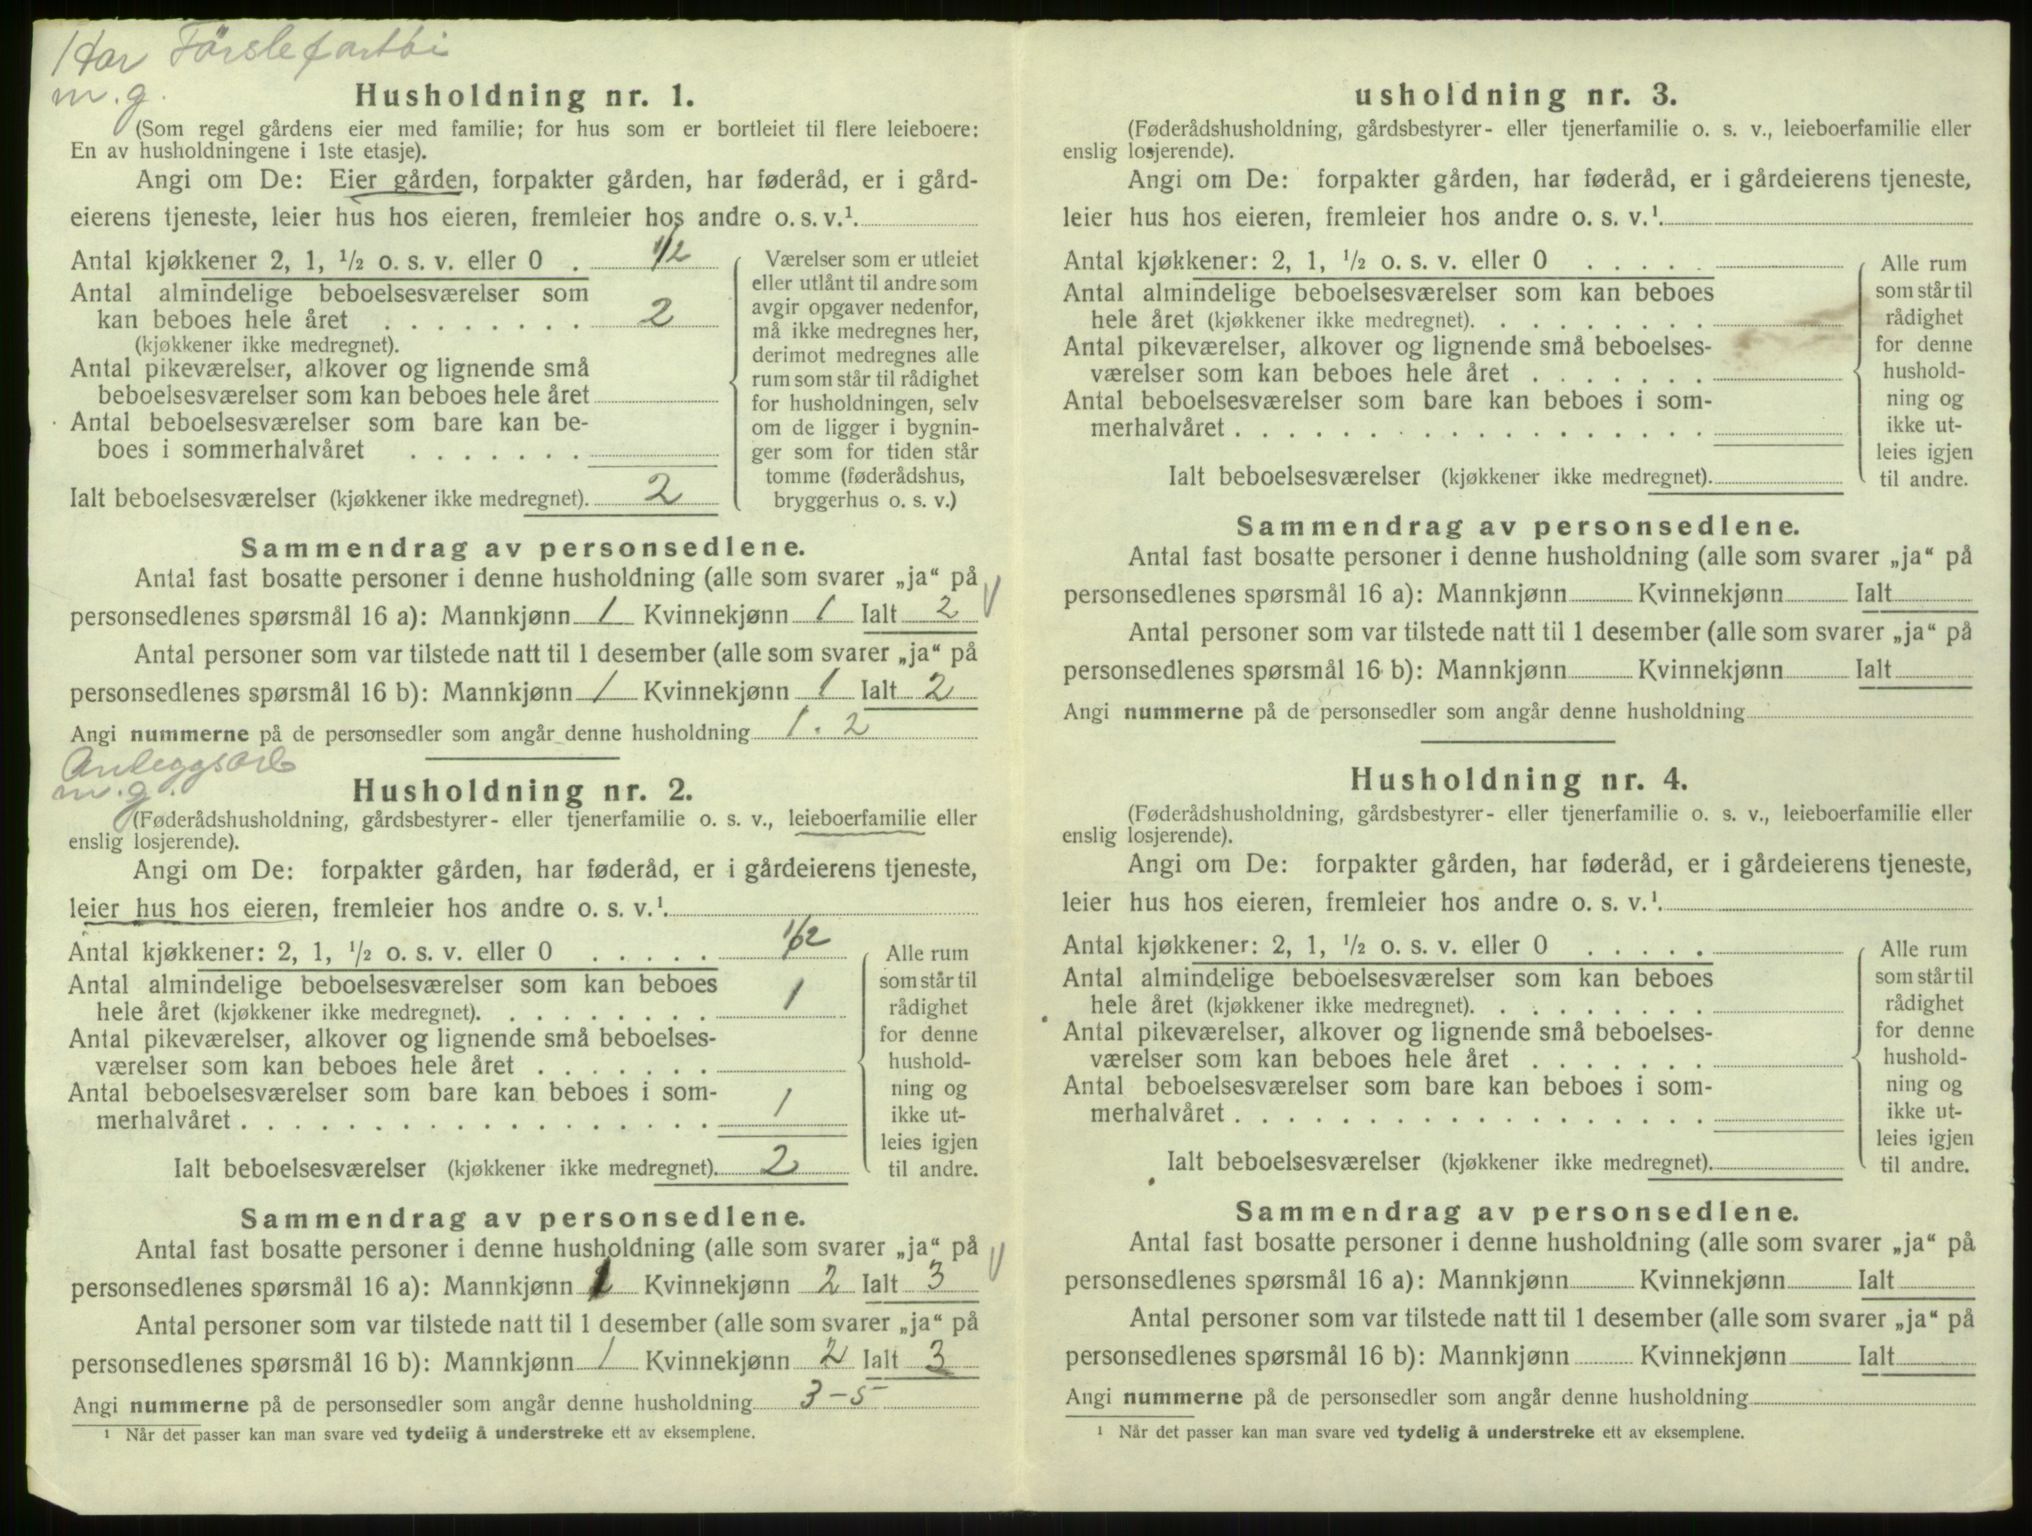 Har
m. g.
Husholdning nr. 1.
(Som regel gårdens eier med familie; for hus som er bortleiet til flere leieboere:
En av husholdningene i 1ste etasje).
Angi om De: Eier gården, forpakter gården, har føderåd, er i gård-
eierens tjeneste, leier hus hos eieren, fremleier hos andre o. s. v.¹.
Antal kjøkkener 2, 1, ½ o. s. v. eller 0 . 1/2
Antal almindelige beboelsesværelser som
kan beboes hele året . . . . . . . . 2
(kjøkkener ikke medregnet).
Antal pikeværelser, alkover og lignende små
beboelsesværelser som kan beboes hele året
Antal beboelsesværelser som bare kan be-
boes i sommerhalvåret . . . . . . .
Ialt beboelsesværelser (kjøkkener ikke medregnet). 2
Værelser som er utleiet
eller utlånt til andre som
avgir opgaver nedenfor,
må ikke medregnes her,
derimot medregnes alle
rum som står til rådighet
for husholdningen, selv
om de ligger i bygnin-
ger som for tiden står
tomme (føderådshus,
bryggerhus o. s. v.)
Sammendrag av personsedlene.
Antal fast bosatte personer i denne husholdning (alle som svarer „ja“ på
personsedlenes spørsmål 16 a): Mannkjønn 1 Kvinnekjønn 1 Ialt 2
Antal personer som var tilstede natt til 1 desember (alle som svarer „ja“ på
personsedlenes spørsmål 16 b): Mannkjønn 1 Kvinnekjønn 1 Ialt 2
Angi nummerne på de personsedler som angår denne husholdning 1. 2
Anleggsarb
m. g.
Husholdning nr. 2.
(Føderådshusholdning, gårdsbestyrer- eller tjenerfamilie o. s. v., leieboerfamilie eller
enslig losjerende).
Angi om De: forpakter gården, har føderåd, er i gårdeierens tjeneste,
leier hus hos eieren, fremleier hos andre o. s. v.¹.
Antal kjøkkener: 2, 1, ½ o. s. v. eller 0 . . . . . 1/2
Antal almindelige beboelsesværelser som kan beboes
hele året (kjøkkener ikke medregnet). . . . . . . . . 1
Antal pikeværelser, alkover og lignende små beboelses-
værelser som kan beboes hele året . . . . . . .
Antal beboelsesværelser som bare kan beboes i som-
merhalvåret . . . . . . . . . . . . . . . . . . 1
Ialt beboelsesværelser (kjøkkener ikke medregnet). 2
Alle rum
som står til
rådighet
for denne
hushold-
ning og
ikke ut-
leies igjen
til andre.
Sammendrag av personsedlene.
Antal fast bosatte personer i denne husholdning (alle som svarer „ja“ på
personsedlenes spørsmål 16 a): Mannkjønn 1 Kvinnekjønn 2 Ialt 3
Antal personer som var tilstede natt til 1 desember (alle som svarer „ja“ på
personsedlenes spørsmål 16 b): Mannkjønn 1 Kvinnekjønn 2 Ialt 3
Angi nummerne på de personsedler som angår denne husholdning 3-5
¹ Når det passer kan man svare ved tydelig å understreke ett av eksemplene.
usholdning nr. 3.
(Føderådshusholdning, gårdsbestyrer- eller tjenerfamilie o. s. v., leieboerfamilie eller
enslig losjerende).
Angi om De: forpakter gården, har føderåd, er i gårdeierens tjeneste,
leier hus hos eieren, fremleier hos andre o. s. v.¹.
Antal kjøkkener: 2, 1, ½ o. s. v. eller 0 . . . . .
Antal almindelige beboelsesværelser som kan beboes
hele året (kjøkkener ikke medregnet). . . . . . . . .
Antal pikeværelser, alkover og lignende små beboelses-
værelser som kan beboes hele året . . . . . . .
Antal beboelsesværelser som bare kan beboes i som-
merhalvåret . . . . . . . . . . . . . . . . . .
Ialt beboelsesværelser (kjøkkener ikke medregnet).
Alle rum
som står til
rådighet
for denne
hushold-
ning og
ikke ut-
leies igjen
til andre.
Sammendrag av personsedlene.
Antal fast bosatte personer i denne husholdning (alle som svarer „ja“ på
personsedlenes spørsmål 16 a): Mannkjønn Kvinnekjønn Ialt
Antal personer som var tilstede natt til 1 desember (alle som svarer „ja“ på
personsedlenes spørsmål 16 b): Mannkjønn Kvinnekjønn Ialt
Angi nummerne på de personsedler som angår denne husholdning
Husholdning nr. 4.
(Føderådshusholdning, gårdsbestyrer- eller tjenerfamilie o. s. v., leieboerfamilie eller
enslig losjerende).
Angi om De: forpakter gården, har føderåd, er i gårdeierens tjeneste,
leier hus hos eieren, fremleier hos andre o. s. v.¹.
Antal kjøkkener: 2, 1, ½ o. s. v. eller 0 . . . . .
Antal almindelige beboelsesværelser som kan beboes
hele året (kjøkkener ikke medregnet). . . . . . . . .
Antal pikeværelser, alkover og lignende små beboelses-
værelser som kan beboes hele året . . . . . . .
Antal beboelsesværelser som bare kan beboes i som-
merhalvåret . . . . . . . . . . . . . . . . . .
Ialt beboelsesværelser (kjøkkener ikke medregnet).
Alle rum
som står til
rådighet
for denne
hushold-
ning og
ikke ut-
leies igjen
til andre.
Sammendrag av personsedlene.
Antal fast bosatte personer i denne husholdning (alle som svarer „ja“ på
personsedlenes spørsmål 16 a): Mannkjønn Kvinnekjønn Ialt
Antal personer som var tilstede natt til 1 desember (alle som svarer „ja“ på
personsedlenes spørsmål 16 b): Mannkjønn Kvinnekjønn Ialt
Angi nummerne på de personsedler som angår denne husholdning
¹ Når det passer kan man svare ved tydelig å understreke ett av eksemplene.